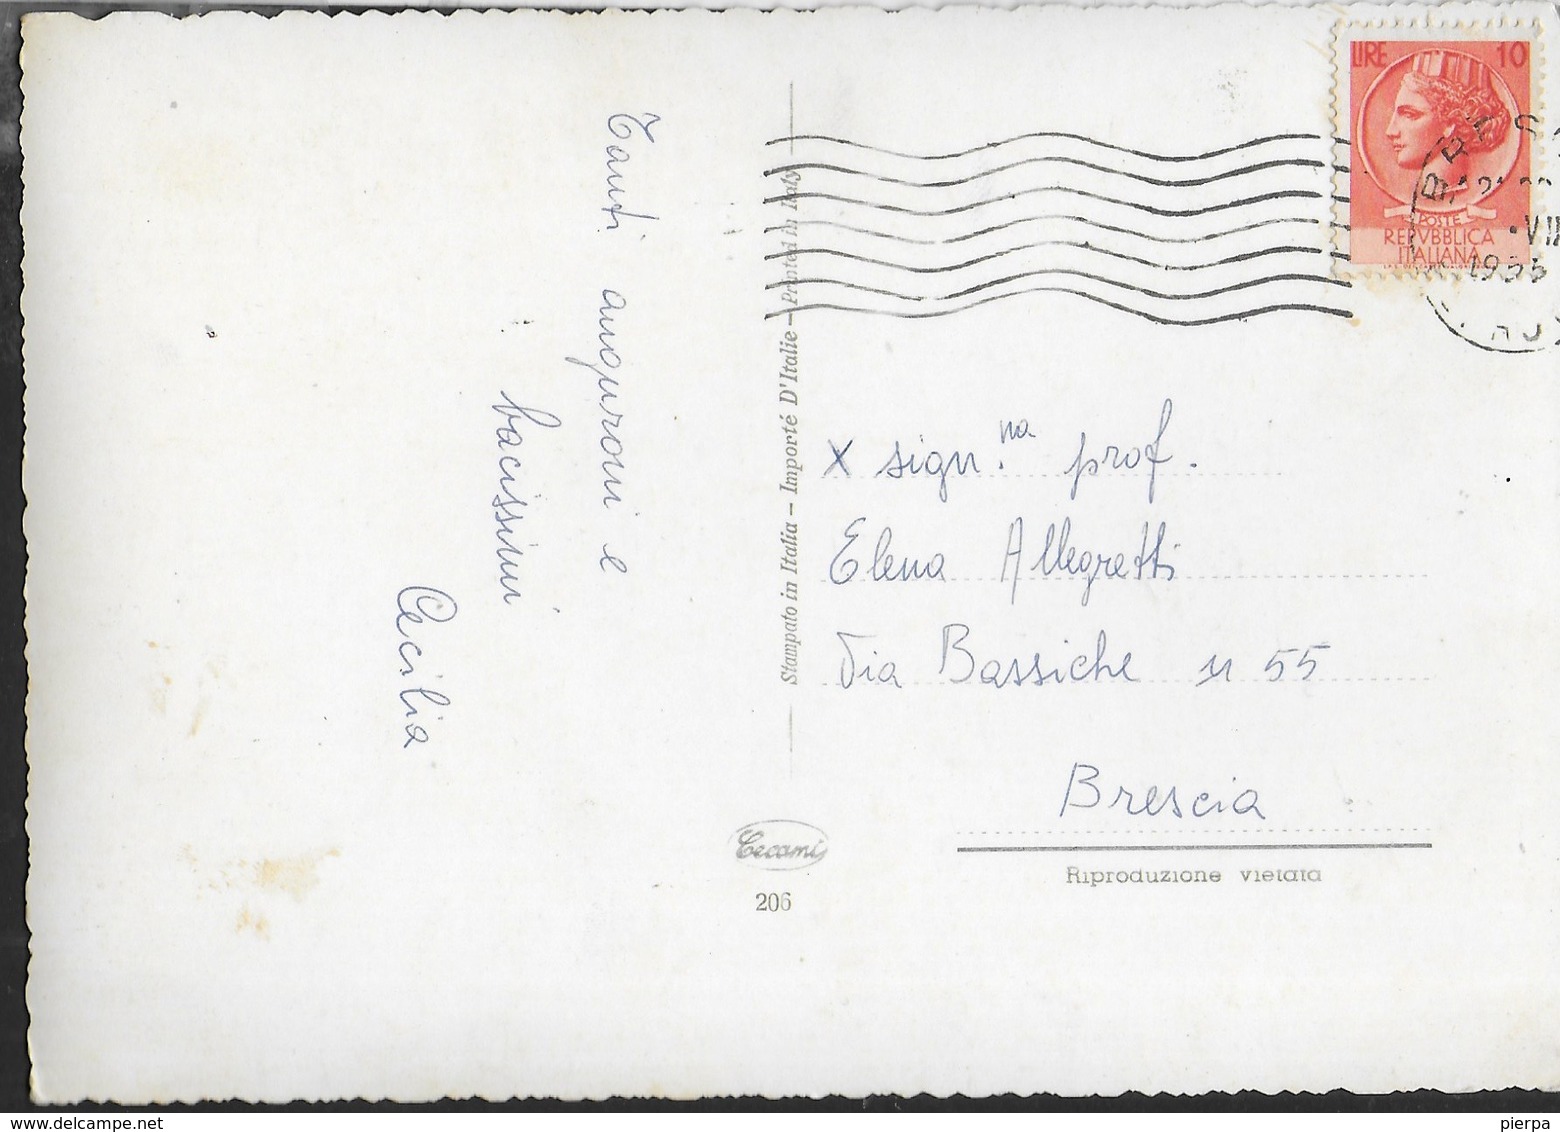 Tanti auguroni e
bacissimi
Cecilia
Stampato in Italia – Importé D'Italie – Printed in Italy
Cecami
206
LIRE 10
POSTE
REPVBBLICA
ITALIANA
x sign.na prof.
Elena Allegretti
Via Bassiche n 55
Brescia
Riproduzione vietata
pierpa